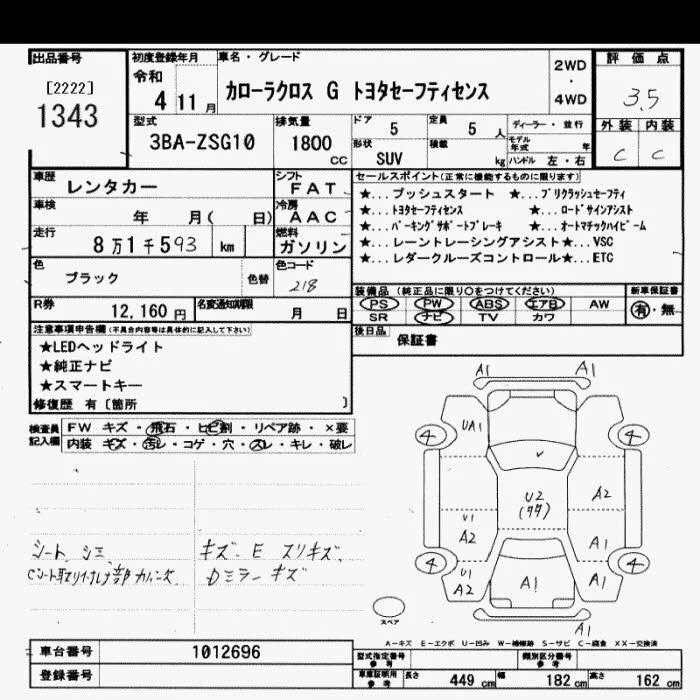 出品番号
[2222]
1343
初度登録年月
令和
4 11月
車名・グレード
カローラクロス G トヨタセーフティセンス
2WD
・
4WD
評価点
3.5
外装 内装
C C
型式
3BA-ZSG10
排気量
1800
CC
ドア 5
定員 5 人
形状
SUV
積載
kg
ディーラー・並行
モデル年式 年
ハンドル 左・右
車歴
レンタカー
シフト
FAT
車検
年 月( 日)
冷房
AAC
走行
8万1千593 km
燃料
ガソリン
色
ブラック
色替
色コード
218
R券
12,160円
名変通知期限
月 日
セールスポイント(正常に機能するものに限ります)
★...プッシュスタート ★...プリクラッシュセーフティ
★...トヨタセーフティセンス ★...ロードサインアシスト
★...パーキングサポートブレーキ ★...オートマチックハイビーム
★...レーントレーシングアシスト★...VSC
★...レダークルーズコントロール★...ETC
装備品(純正品に限り○をつけてください)
PS PW ABS エアB AW
SR ナビ TV カワ
新車保証書
有・無
後日品
保証書
注意事項申告欄(不具合内容等は具体的に記入して下さい)
★LEDヘッドライト
★純正ナビ
★スマートキー
修復歴 有〔箇所 〕
検査員記入欄
FW キズ・飛石・ヒビ割・リペア跡・×要
内装 キズ・汚レ・コゲ・穴・スレ・キレ・破レ
シート シミ
キズ E スリキズ
Dミラー キズ
A1 A1
UA1
4 4
U2
A2
U1
A2
A1
4 4
U1
A2
A1
A1
A1
スペア
A-キズ E-エクボ U-凹み W-補修跡 S-サビ C-腐食 XX-交換済
車台番号
1012696
登録番号
型式指定番号
参考
類別区分番号
参考
車庫証明用
参考
長さ 449 cm
幅 182 cm
高さ 162 cm